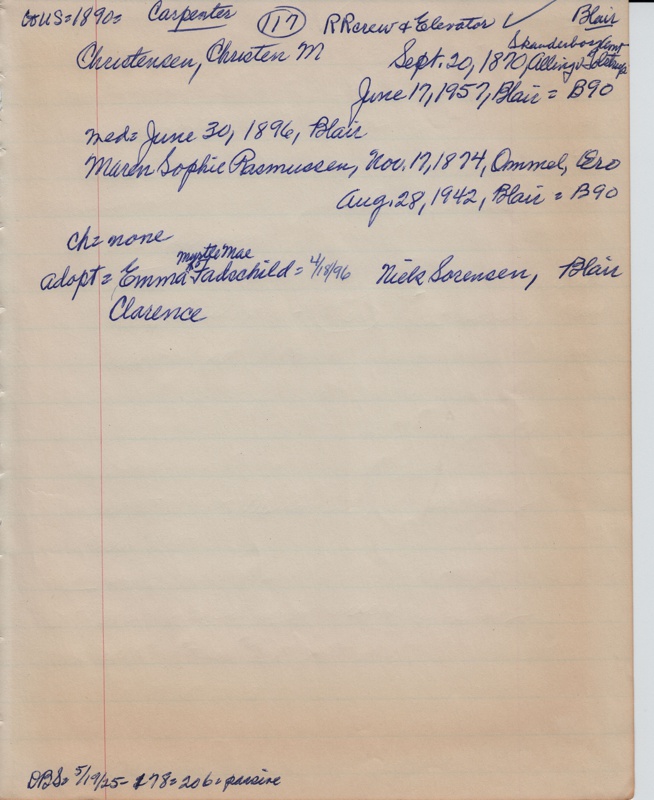 to US = 1890 = Carpenter 117 RR crew & Elevator ✓ Blair
Skanderborg Amt
Christensen, Christen M Sept. 20, 1870, Alling v
June 17, 1957, Blair = B90
med = June 30, 1896, Blair
Maren Sophie Rasmussen, Nov. 17, 1874, Ommel, Ero
Aug. 28, 1942, Blair = B90
ch = none
Myrtle Mae
adopt = Emma Fadschild = 4/18/96 Niels Sorensen, Blair
Clarence
DBS = 5/19/25 - 178 = 206 = passive